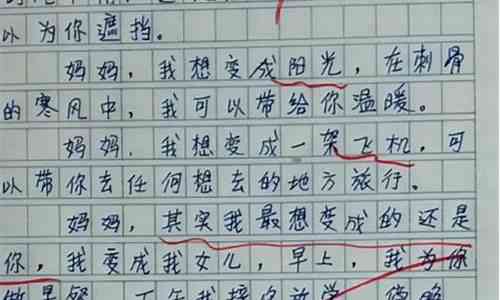 以为你遮挡。
妈妈，我想变成阳光，在刺骨
的寒风中，我可以带给你温暖。
妈妈．我想变成一架飞机，可
以带你去任何想去的地方旅行。
妈妈，其实我最想变成的还是
你，我变成我女儿，早上，我为你